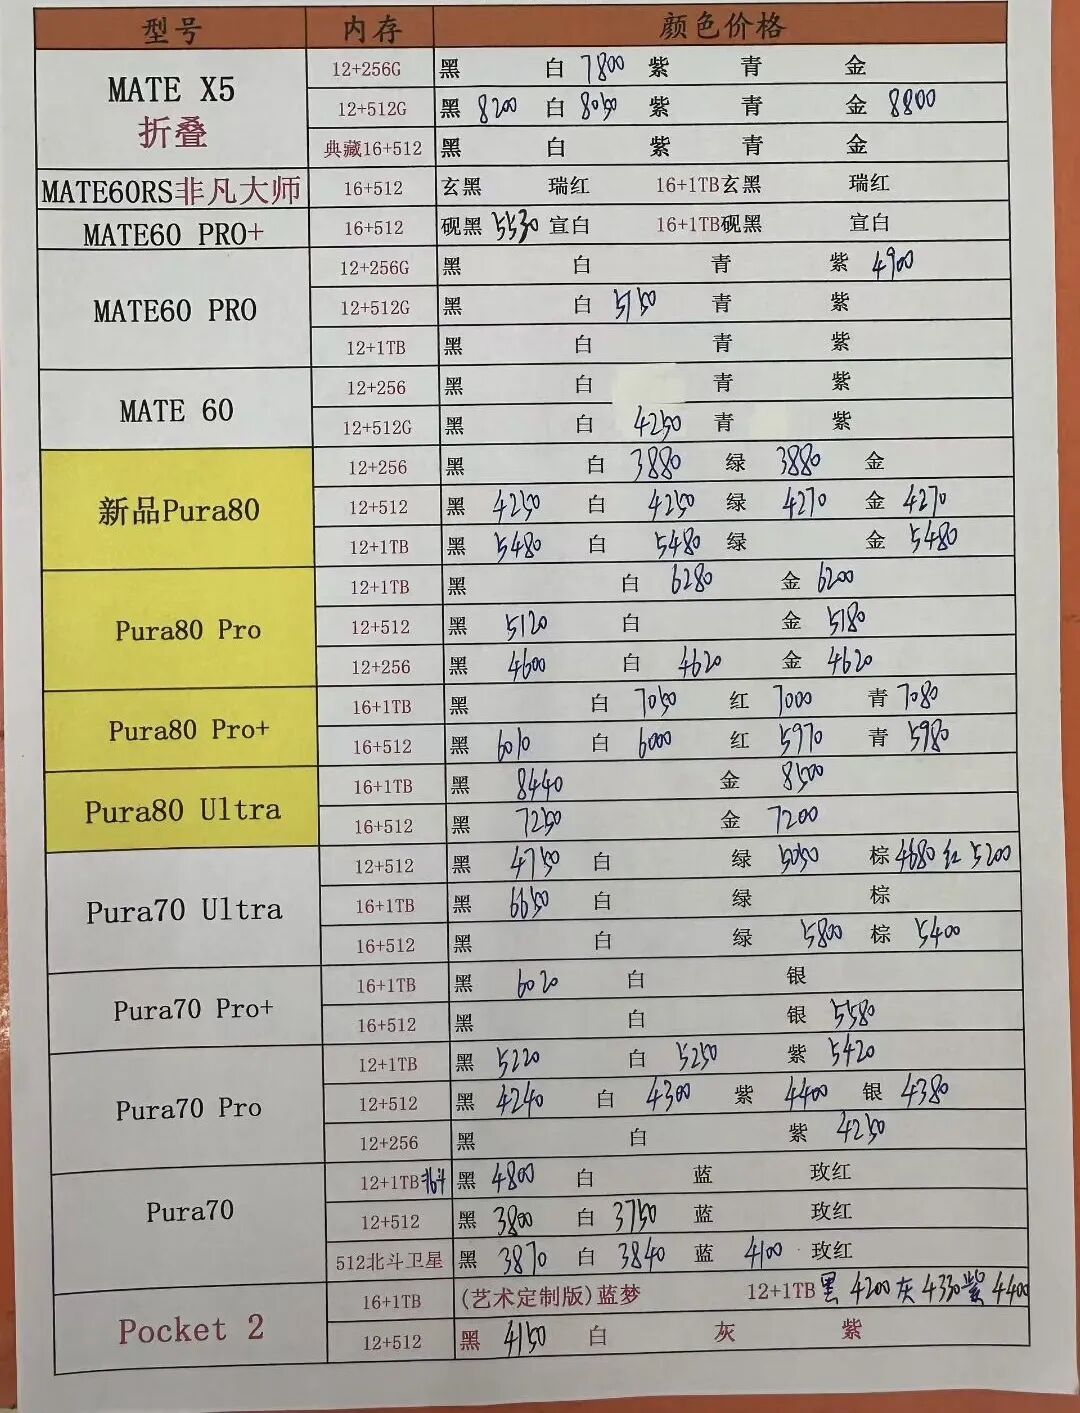 型号 内存 颜色价格
MATE X5 折叠 12+256G 黑 白 7800 紫 青 金
12+512G 黑 8200 白 8050 紫 青 金 8800
典藏16+512 黑 白 紫 青 金
MATE60RS非凡大师 16+512 玄黑 瑞红 16+1TB玄黑 瑞红
MATE60 PRO+ 16+512 砚黑 5530 宣白 16+1TB砚黑 宣白
MATE60 PRO 12+256G 黑 白 青 紫 4900
12+512G 黑 白 5150 青 紫
12+1TB 黑 白 青 紫
MATE 60 12+256 黑 白 青 紫
12+512G 黑 白 4250 青 紫
新品Pura80 12+256 黑 白 3880 绿 3880 金
12+512 黑 4250 白 4250 绿 4270 金 4270
12+1TB 黑 5480 白 5480 绿 金 5480
Pura80 Pro 12+1TB 黑 白 6280 金 6200
12+512 黑 5120 白 金 5180
12+256 黑 4600 白 4620 金 4620
Pura80 Pro+ 16+1TB 黑 白 7050 红 7000 青 7080
16+512 黑 6010 白 6000 红 5970 青 5980
Pura80 Ultra 16+1TB 黑 8440 金 8500
16+512 黑 7250 金 7200
Pura70 Ultra 12+512 黑 4750 白 绿 5050 棕 4680 红 5200
16+1TB 黑 6650 白 绿 棕
16+512 黑 白 绿 5800 棕 5400
Pura70 Pro+ 16+1TB 黑 6020 白 银
16+512 黑 白 银 5580
Pura70 Pro 12+1TB 黑 5220 白 5250 紫 5420
12+512 黑 4240 白 4300 紫 4400 银 4380
12+256 黑 白 紫 4250
Pura70 12+1TB北斗 黑 4800 白 蓝 玫红
12+512 黑 3800 白 3750 蓝 玫红
512北斗卫星 黑 3870 白 3840 蓝 4100 玫红
Pocket 2 16+1TB (艺术定制版)蓝梦 12+1TB 黑 4200 灰 4330 紫 4400
12+512 黑 4150 白 灰 紫